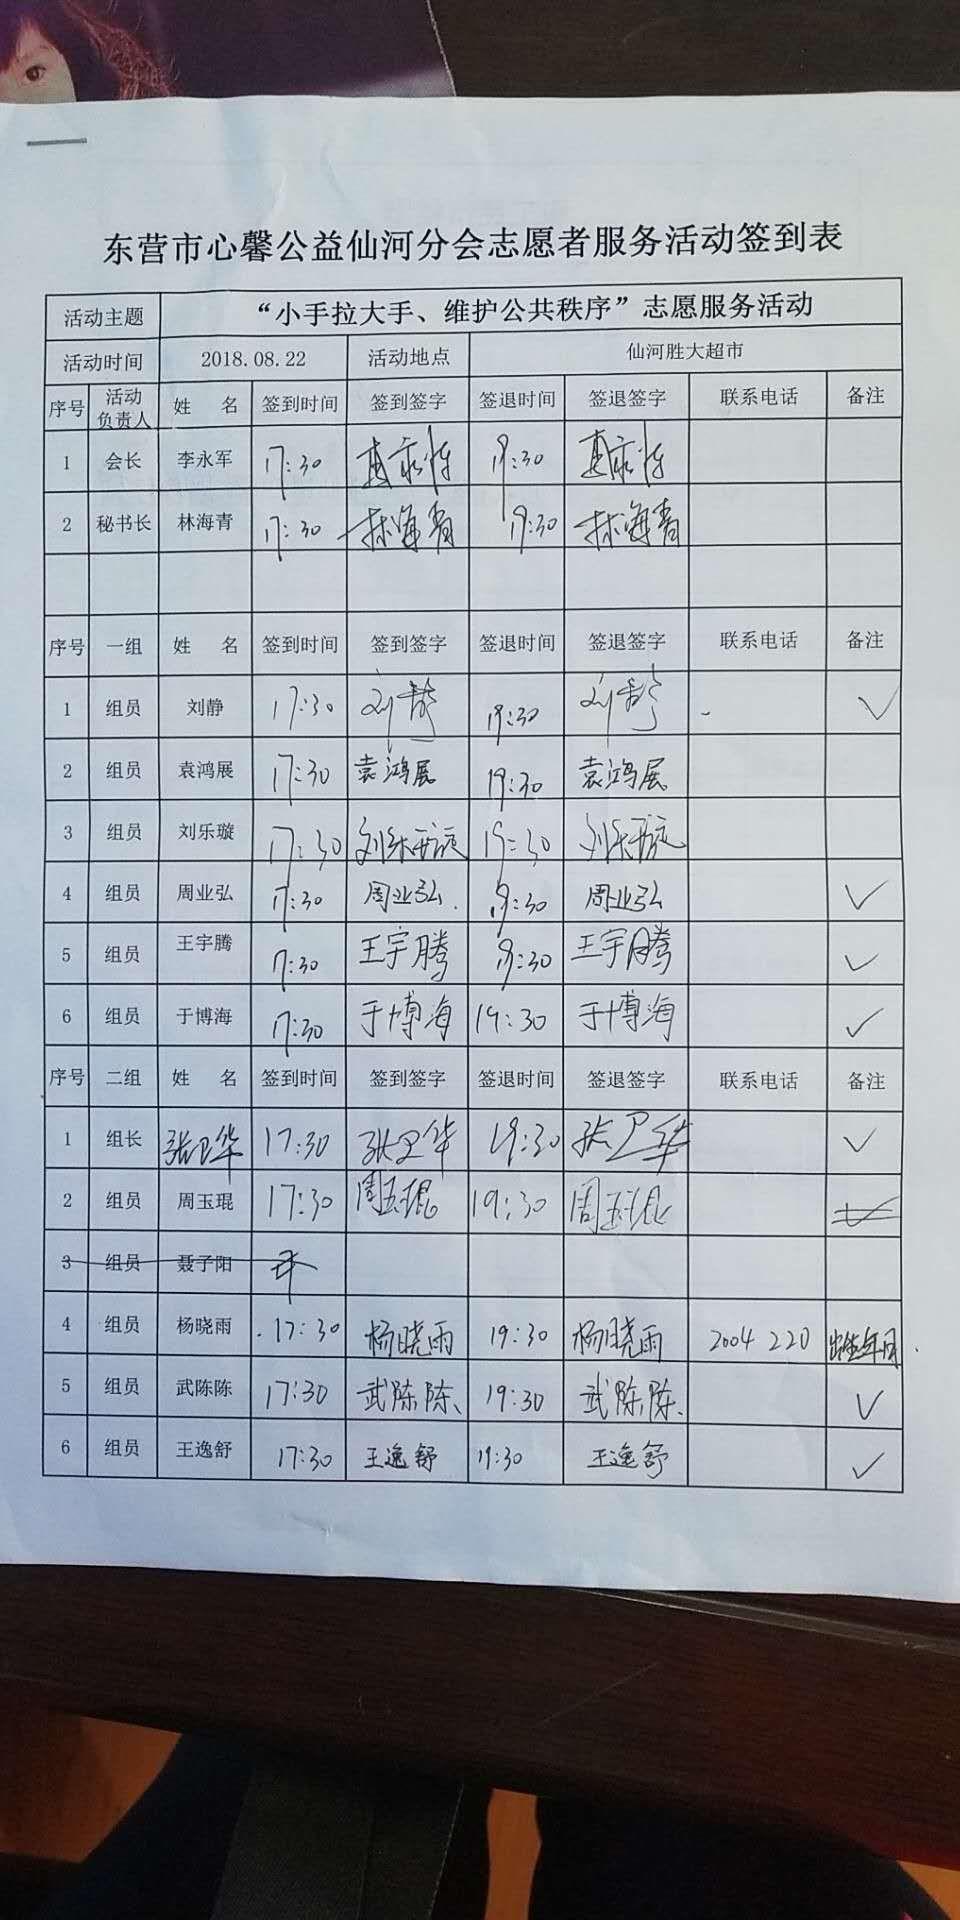 东营市心馨公益仙河分会志愿者服务活动签到表
活动主题 “小手拉大手、维护公共秩序”志愿服务活动
活动时间 2018.08.22 活动地点 仙河胜大超市
序号 活动负责人 姓 名 签到时间 签到签字 签退时间 签退签字 联系电话 备注
1 会长 李永军 17:30 19:30
2 秘书长 林海青 17:30 林海青 19:30 林海青
序号 一组 姓 名 签到时间 签到签字 签退时间 签退签字 联系电话 备注
1 组员 刘静 17:30 刘静 19:30 刘静
2 组员 袁鸿展 17:30 袁鸿展 19:30 袁鸿展
3 组员 刘乐璇 17:30 刘乐璇 19:30 刘乐璇
4 组员 周业弘 17:30 周业弘 19:30 周业弘
5 组员 王宇腾 17:30 王宇腾 19:30 王宇腾
6 组员 于博海 17:30 于博海 19:30 于博海
序号 二组 姓 名 签到时间 签到签字 签退时间 签退签字 联系电话 备注
1 组长 张卫华 17:30 张卫华 19:30 张卫华
2 组员 周玉琨 17:30 周玉琨 19:30 周玉琨
3 组员 聂子阳
4 组员 杨晓雨 17:30 杨晓雨 19:30 杨晓雨 2004 220 出生年月
5 组员 武陈陈 17:30 武陈陈、 19:30 武陈陈、
6 组员 王逸舒 17:30 王逸舒 19:30 王逸舒